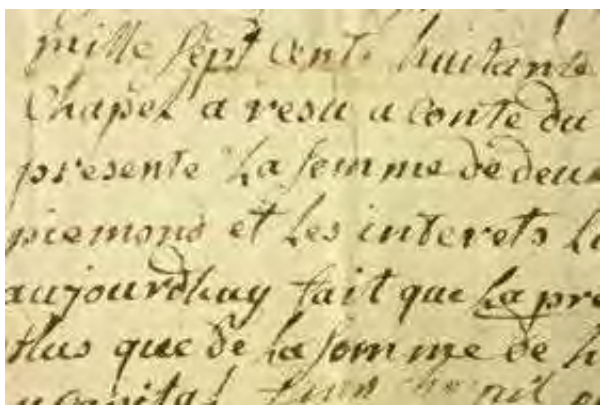 mille sept cents huitante
Chapel a resu a conte du
presente La somme de deux
piemond et Les interets
aujourdhuy fait que La pre
plus que de La somme de
capital